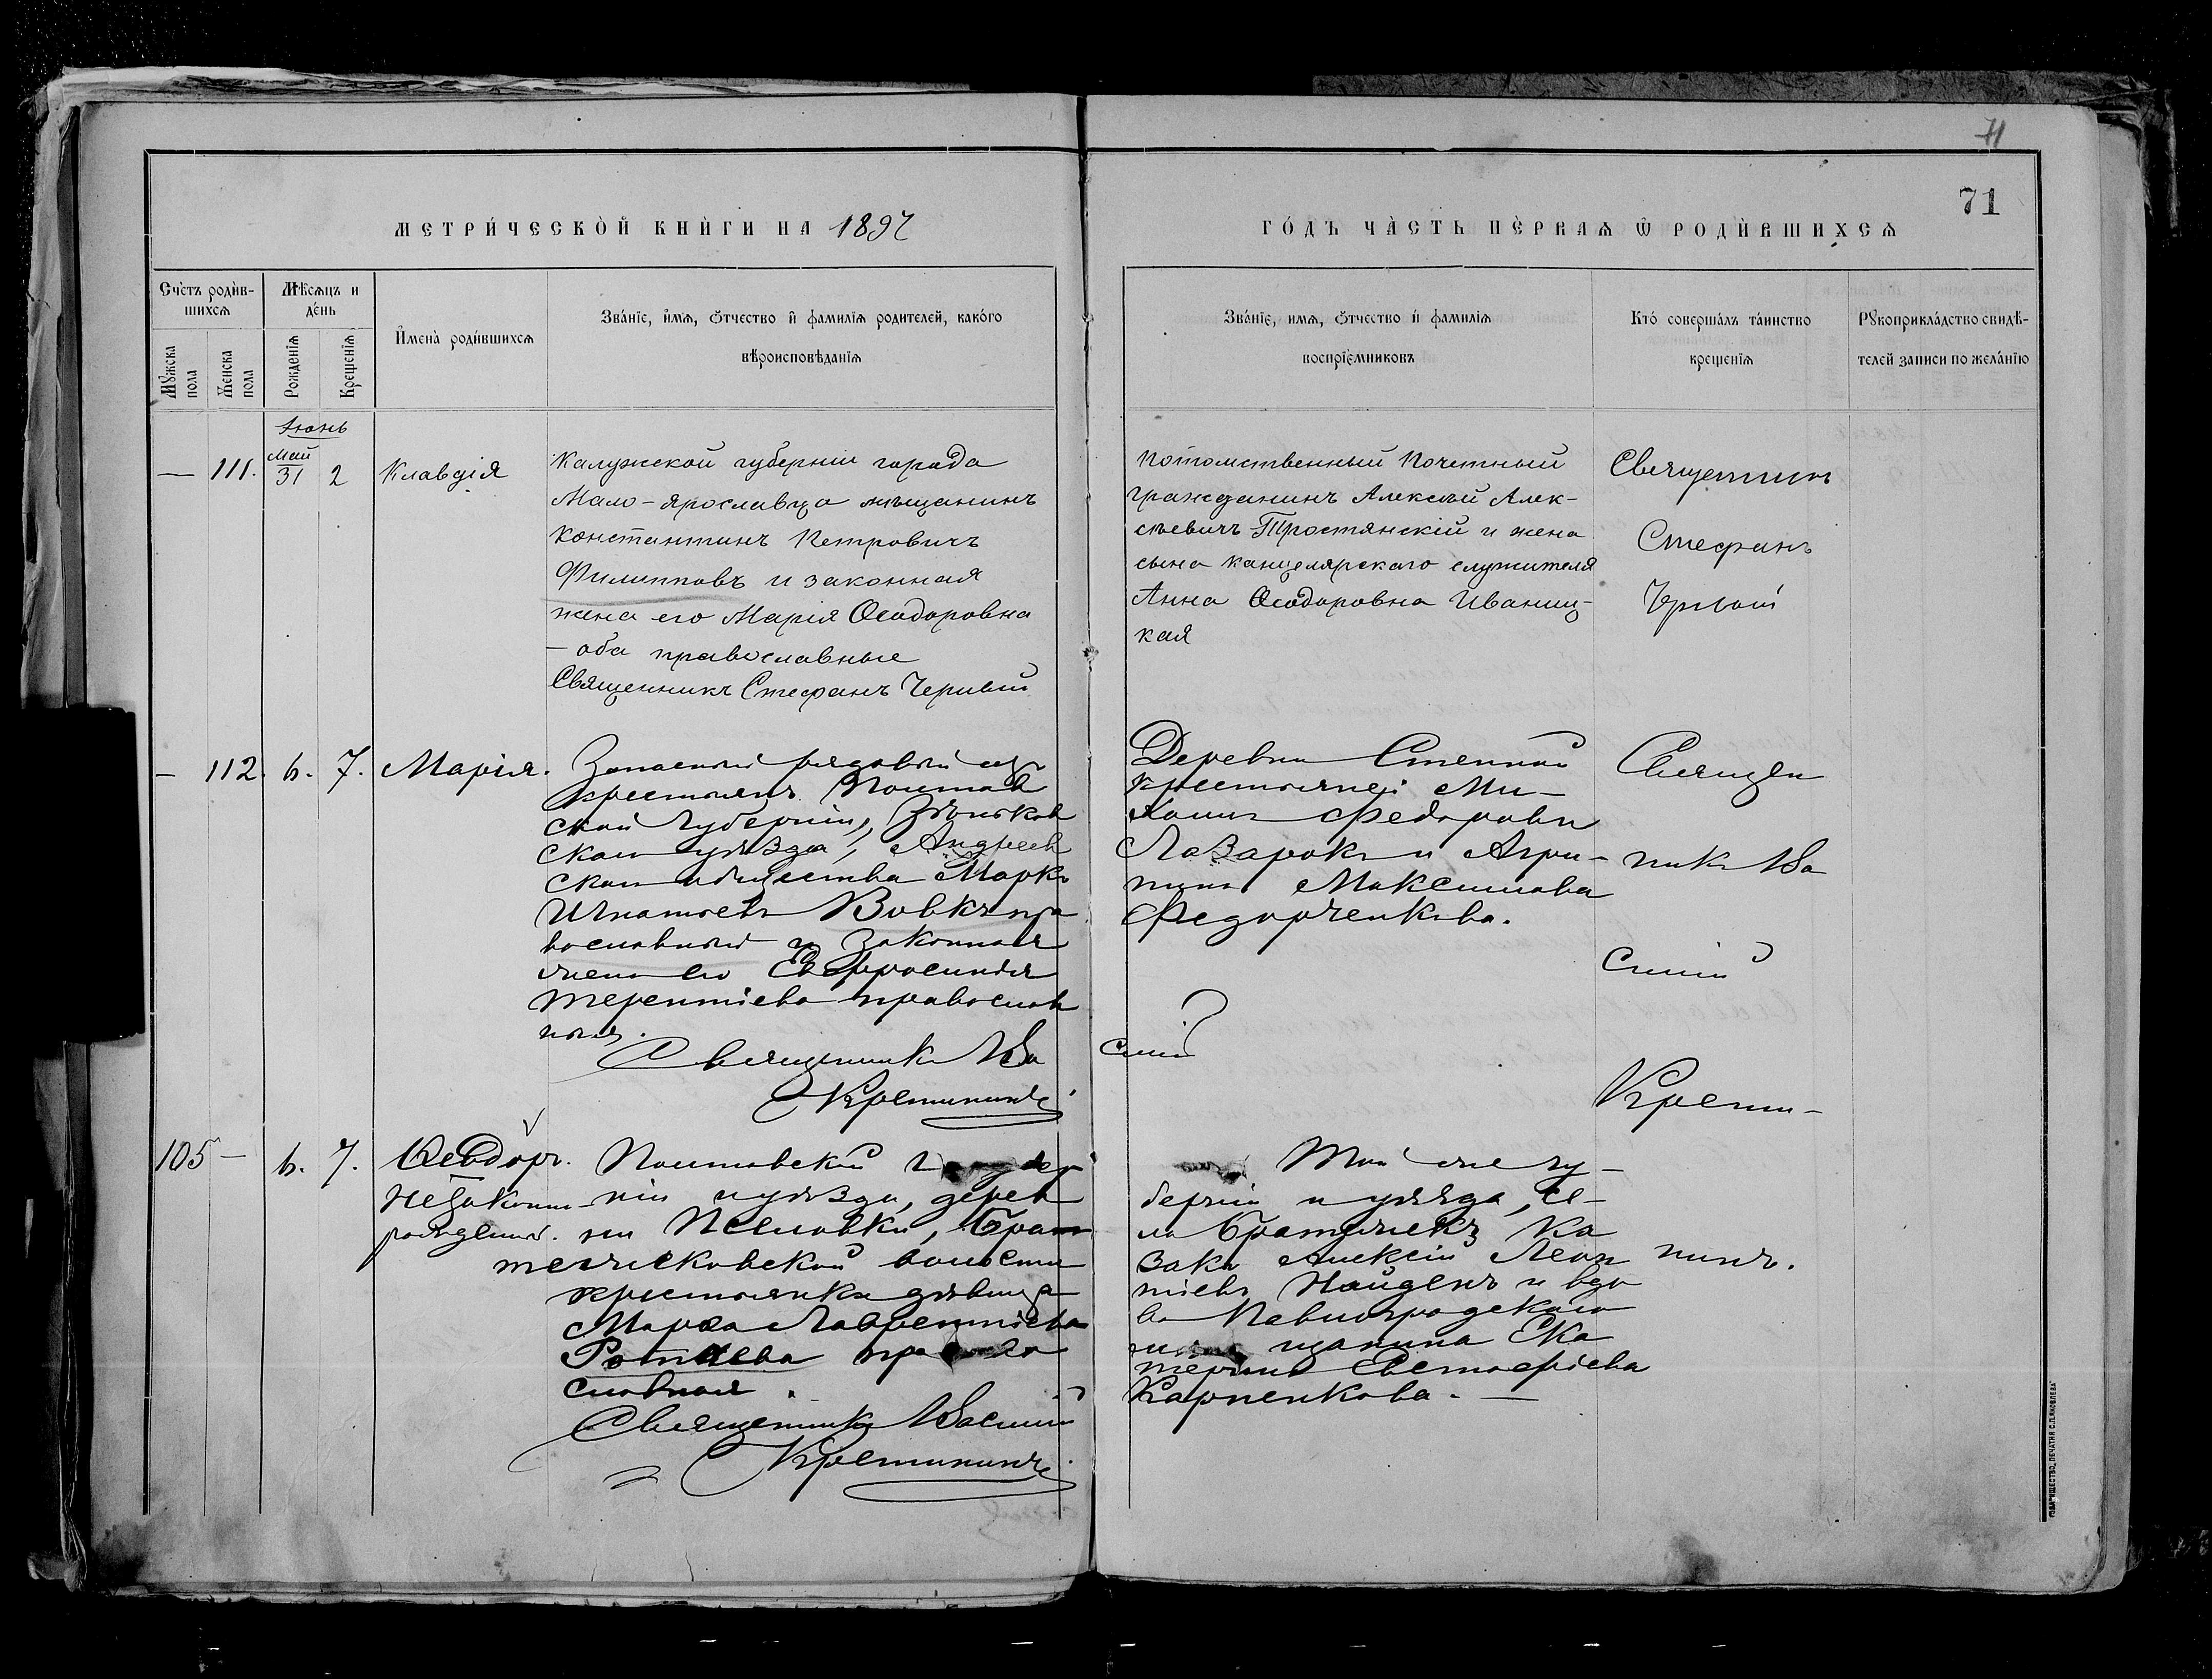 71
71
МЕТРИ́ЧЕСКО́Й КНИ́ГИ НА 1897
ГО́ДЪ ЧА́СТЬ ПЕ́РВАѦ Ѡ РОДИ́ВШИХСѦ
Сче́тъ роди́в-
шихсѧ
Мꙋжска
пола
Же́нска
пола
Мѣ́сѧцъ и
де́нь
Рожденїѧ
Крещенїѧ
И҆мена̀ роди́вшихсѧ
Зва́нїе, и҆́мѧ, ѻ҆́тчество и҆ фамилїѧ родителей, како́го
вѣроисповѣданїѧ
Зва́нїе, имѧ, ѻ҆́тчество и҆ фамилїѧ
воспрїе́мниковъ
Кто̀ соверша́лъ та́инство
крещенїѧ
Рꙋкоприкла́дство свидѣ́-
телей записи по жела́нїю
Іюнь
— 111.
Май
31
2
Клавдія
Калужской губерніи города
Мало-ярославца мѣщанинъ
Константинъ Петровичъ
Филипповъ и законная
жена его Марія Ѳеодоровна
— оба православные
Священникъ Стефанъ Черный
Потомственный Почетный
гражданинъ Алексѣй Алек-
сѣевичъ Тростянскій и жена
сына канцелярскаго служителя
Анна Ѳеодоровна Иваниц-
кая
Священникъ
Стефанъ
Чрный
— 112. 6. 7. Марія.
Запасный рядовый изъ
крестьянъ Полтав
ской Губерніи, Зѣньков
скаго уѣзда, Андреев
скаго общества Маркъ
Игнатьевъ Вовкъ пра
вославный и законная
жена его Евфросинія
Терентіева православ
ная.
Священникъ Ва
силій
Крешининъ
Деревни Степной
крестьяне: Ми-
хаилъ Федоровъ
Лазарокъ и Агри-
пина Максимова
Федорченкова.
Священ
никъ Ва
силій
Крешн-
нинъ.
105 — 6. 7. Ѳеодоръ.
Незаконно-
рожденный.
Полтавской Губер
ніи и уѣзда, дерев
ни Псиловки, Брат
тешковской волости
крестьянка дѣвица
Марѳа Лаврентіева
православная.
Священникъ Василій
Крешининъ
Той же гу-
берніи и уѣзда, се-
ла Братешекъ ка
закъ Алексій Леон
тіевъ Найденъ и вдо
ва Павлоградскаго
щанина Ека
терина Евстафіева
Карпенкова. —
ТОВАРИЩЕСТВО „ПЕЧАТНЯ С.П.ЯКОВЛЕВА“